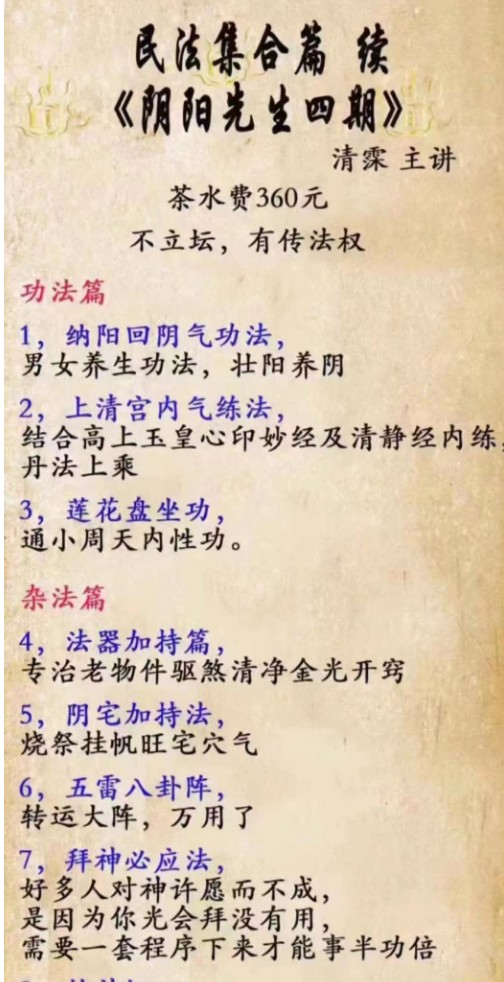 民法集合篇 续
《阴阳先生四期》
清霂 主讲
茶水费360元
不立坛，有传法权
功法篇
1，纳阳回阴气功法，
男女养生功法，壮阳养阴
2，上清宫内气练法，
结合高上玉皇心印妙经及清静经内练，
丹法上乘
3，莲花盘坐功，
通小周天内性功。
杂法篇
4，法器加持篇，
专治老物件驱煞清净金光开窍
5，阴宅加持法，
烧祭挂帆旺宅穴气
6，五雷八卦阵，
转运大阵，万用了
7，拜神必应法，
好多人对神许愿而不成，
是因为你光会拜没有用，
需要一套程序下来才能事半功倍